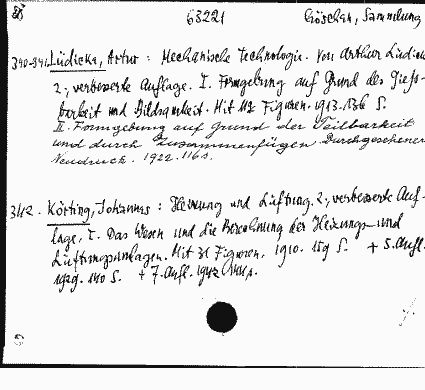 63221 Göschen, Sammlung
340-341. Lüdicke, Artur: Mechanische Technologie. Von Arthur Lüdicke
2., verbesserte Auflage. I. Formgebung auf Grund des Gieß-
barkeit und Bildsamkeit. Mit 112 Figuren. 1913. 136 S.
II. Formgebung auf Grund der Teilbarkeit
und durch Zusammenfügen. Durchgesehener
Neudruck. 1922. 116 S.
342. Körting, Johannes: Heizung und Lüftung. 2., verbesserte Auf-
lage. I. Das Wesen und die Berechnung der Heizungs- und
Lüftungsanlagen. Mit 31 Figuren. 1910. 159 S. + 5. Aufl.
1929. 140 S. + 7. Aufl. 1942